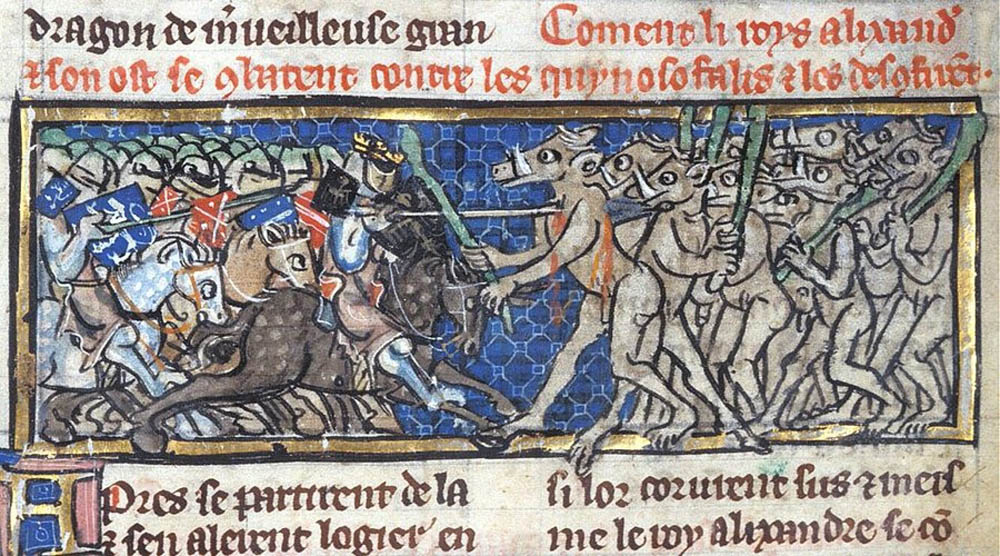 dragon de m̃ueilleuse gran
Coment li roys alixand᾽
⁊ son ost se ꝯbatent contre les quynosofalis ⁊ les desꝯfirẽt.
APres se partirent de la
⁊ sen aleirent logier en
si lor corurent sus ⁊ meis
me le roy alixandre se cõ